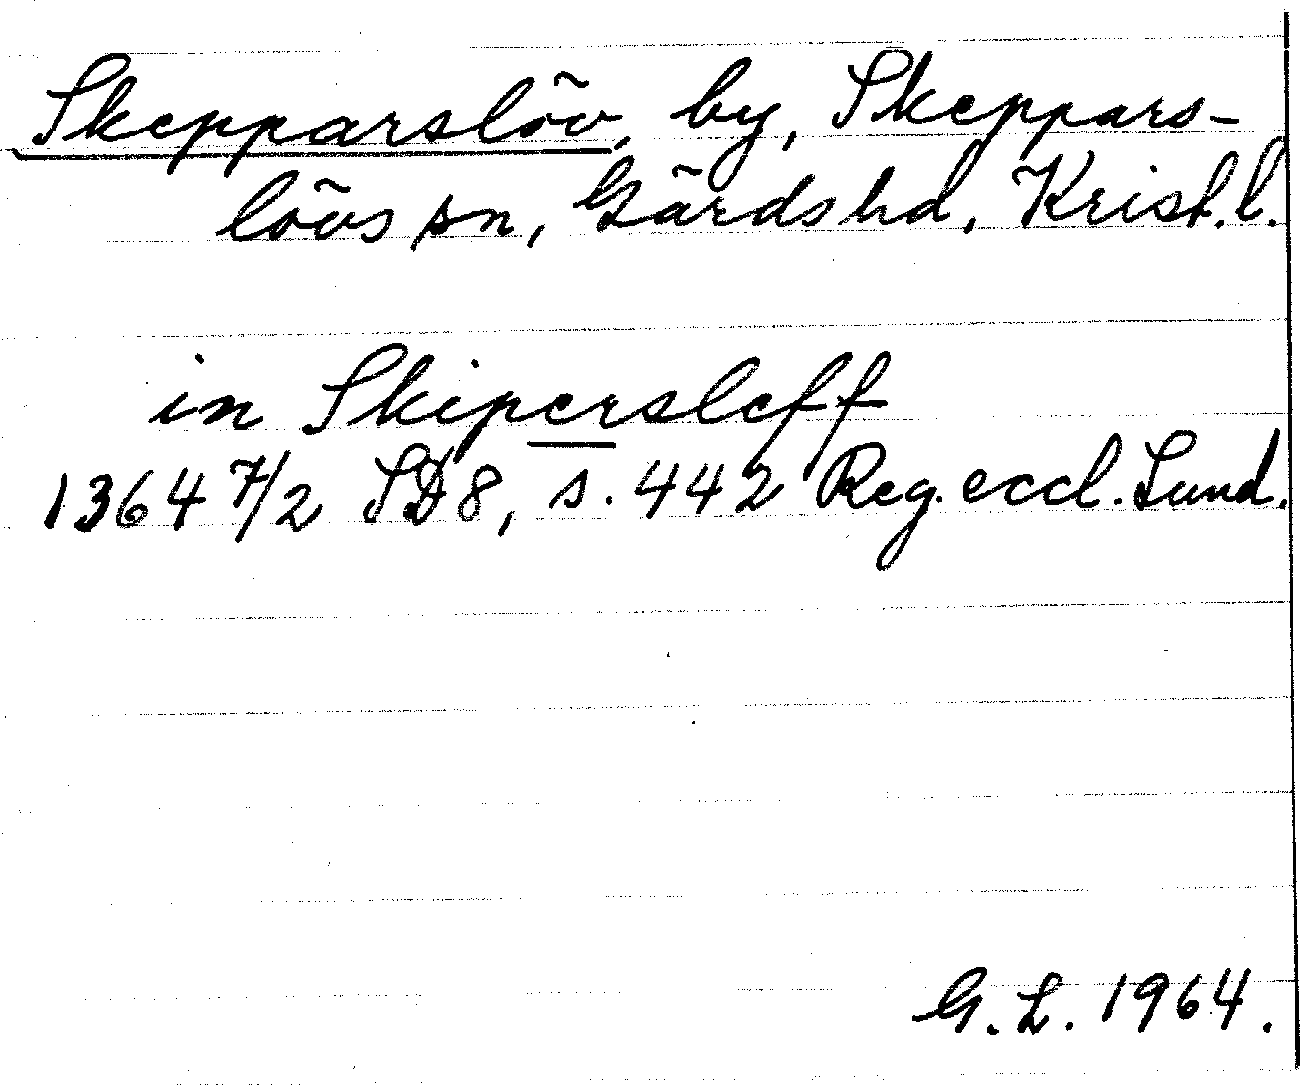 Skepparslöv, by, Skeppars-
lövs sn, Gärds hd, Krist. l.
in Skipersleff
1364 7/2 SD 8, s. 442 Reg. eccl. Lund.
G. L. 1964.